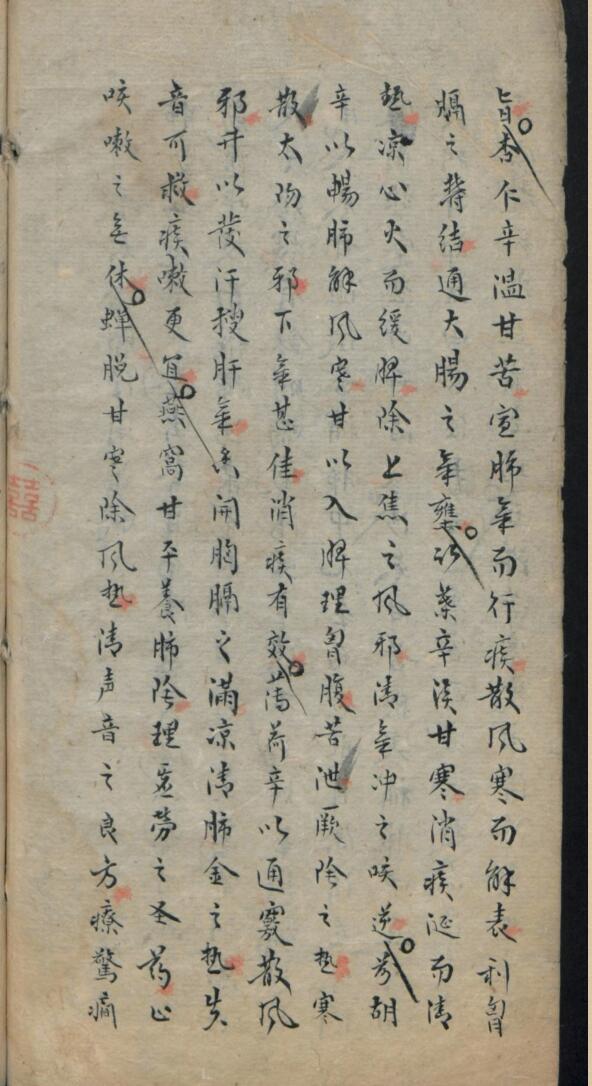 旨杏仁辛温甘苦宣肺氣而行痰散风寒而解表利胷
膈之欝結通大腸之氣壅竹葉辛淡甘寒消痰涎而清
热凉心火而緩脾除上焦之风邪清氣冲之咳逆前胡
辛以暢肺解风寒甘以入脾理胷腹苦泄厥陰之热寒
散太陽之邪下氣甚佳消痰有效薄荷辛以通竅散风
邪升以發汗搜肝氣開胸膈之满凉清肺金之热失
音可救痰嗽更宜燕窩甘平養肺陰理虛勞之圣药止
咳嗽之無休蝉脱甘寒除风热清声音之良方療驚癎
囍